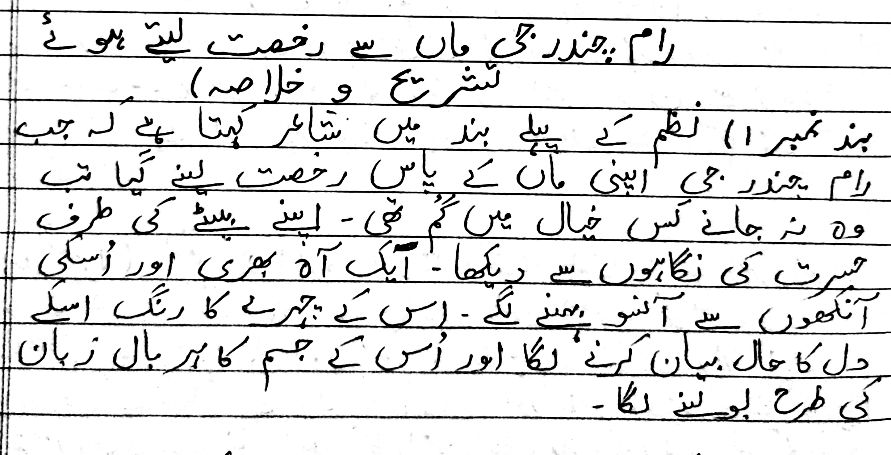 رام چندر جی ماں سے رخصت لیتے ہوئے
تشریح و خلاصہ)
بند نمبر ۱) نظم کے پہلے بند میں شاعر کہتا ہے کہ جب
رام چندر جی اپنی ماں کے پاس رخصت لینے گیا تب
وہ نہ جانے کس خیال میں گُم تھی۔ اپنے بیٹے کی طرف
حسرت کی نگاہوں سے دیکھا۔ ایک آہ بھری اور اُسکی
آنکھوں سے آنسو بہنے لگے۔ اس کے چہرے کا رنگ اسکے
دل کا حال بیان کرنے لگا اور اُس کے جسم کا ہر بال زبان
کی طرح بولنے لگا۔